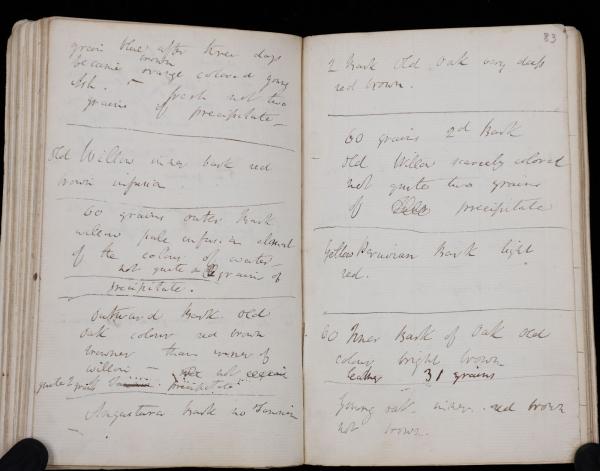 grain blue after three days
became brown orange colored young
Ash. — fresh not two
grains of precipitate —
Old Willow inner bark red
brown infusion
60 grains outer bark
willow pale infusion almost
of the colour of water —
not quite a grain of
precipitate.
outward bark old
oak colour red brown
browner than inner of
willow — not
quite 2 grains precipitate
Angustura bark no Tannin
—
83
2 bark old oak very deep
red brown.
60 grains 2d bark
old Willow scarcely colored
not quite two grains
of precipitate
Yellow Peruvian bark light
red.
60 Inner bark of oak old
colour bright brown
leather 31 grains
Young oak inner red brown
not brown.